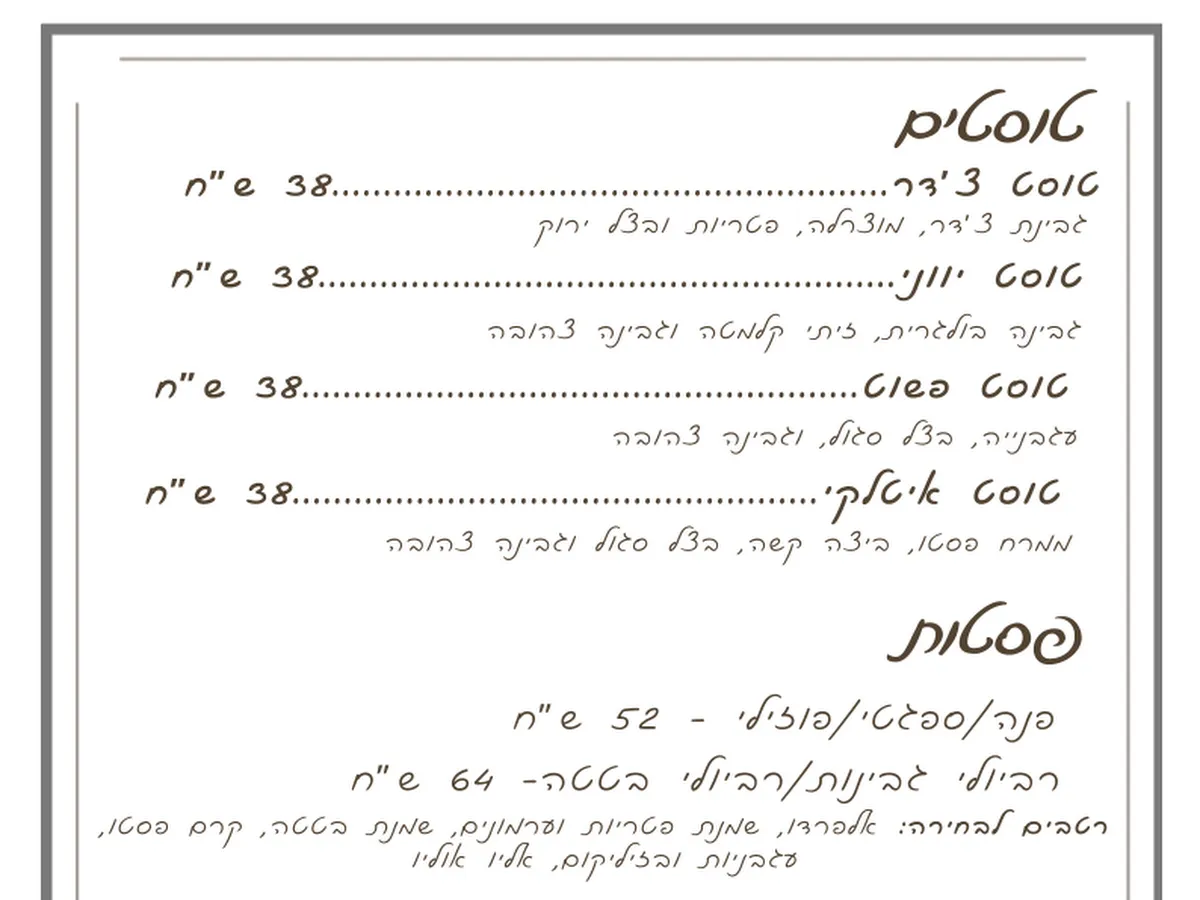 טוסטים
טוסט צ'דר......................................................38 ש"ח
גבינת צ'דר, מוצרלה, פטריות ובצל ירוק
טוסט יווני........................................................38 ש"ח
גבינה בולגרית, זיתי קלמטה וגבינה צהובה
טוסט פשוט......................................................38 ש"ח
עגבנייה, בצל סגול, וגבינה צהובה
טוסט איטלקי...................................................38 ש"ח
ממרח פסטו, ביצה קשה, בצל סגול וגבינה צהובה
פסטות
פנה/ספגטי/פוזילי - 52 ש"ח
רביולי גבינות/רביולי בטטה- 64 ש"ח
רטבים לבחירה: אלפרדו, שמנת פטריות וערמונים, שמנת בטטה, קרם פסטו,
עגבניות ובזיליקום, אליו אוליו